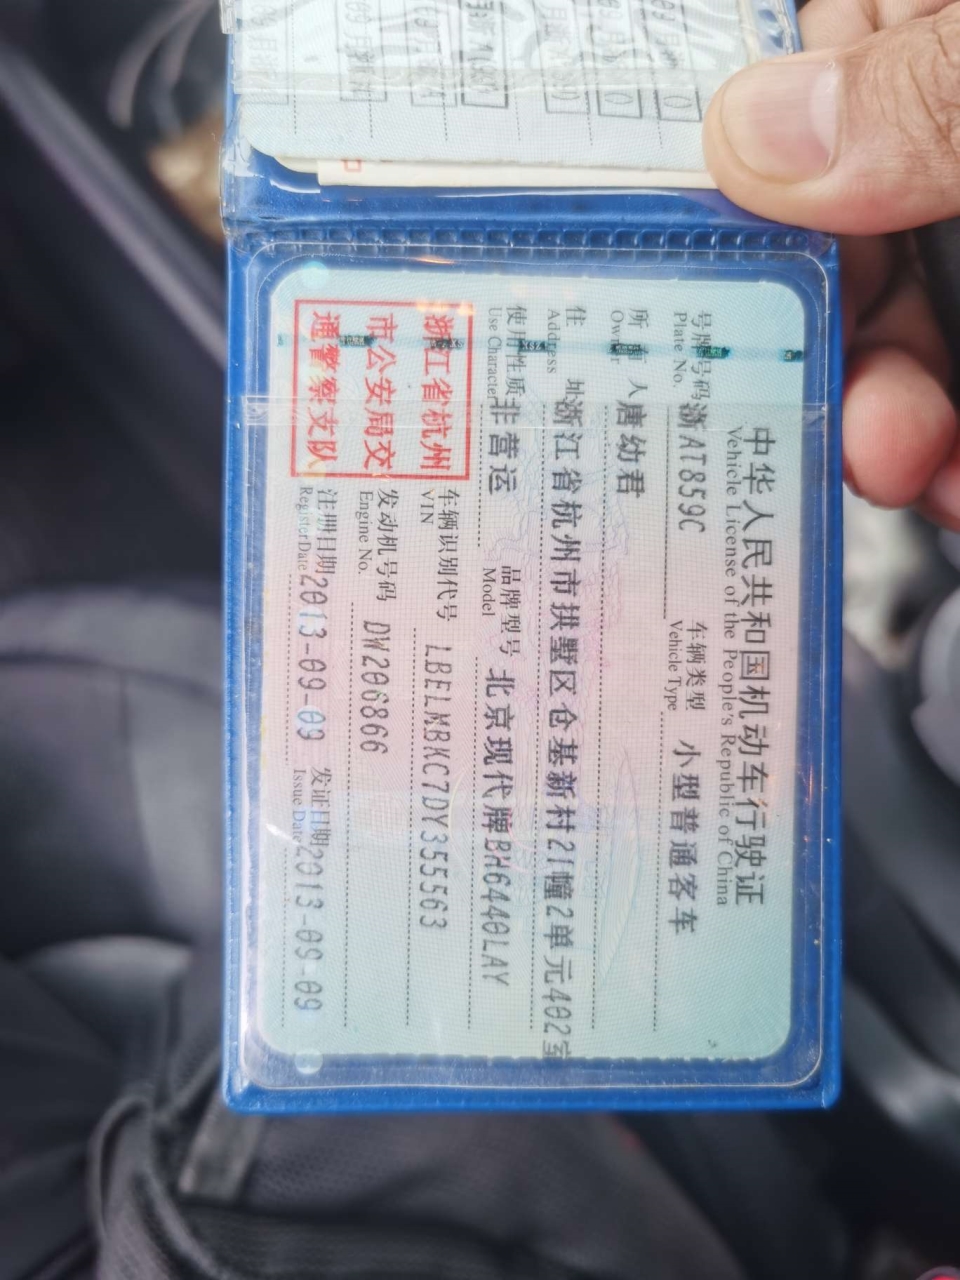 中华人民共和国机动车行驶证
Vehicle License of the People's Republic of China
号牌号码 浙AT859C 车辆类型 小型普通客车
Plate No. Vehicle Type
所有人 唐幼君
Owner
住 址 浙江省杭州市拱墅区仓基新村21幢2单元402室
Address
使用性质 非营运 品牌型号 北京现代牌BH6440LAY
Use Character Model
浙江省杭州
市公安局交
通警察支队
车辆识别代号 LBELMBKC7DY355563
VIN
发动机号码 DW206866
Engine No.
注册日期 2013-09-09 发证日期 2013-09-09
Register Date Issue Date